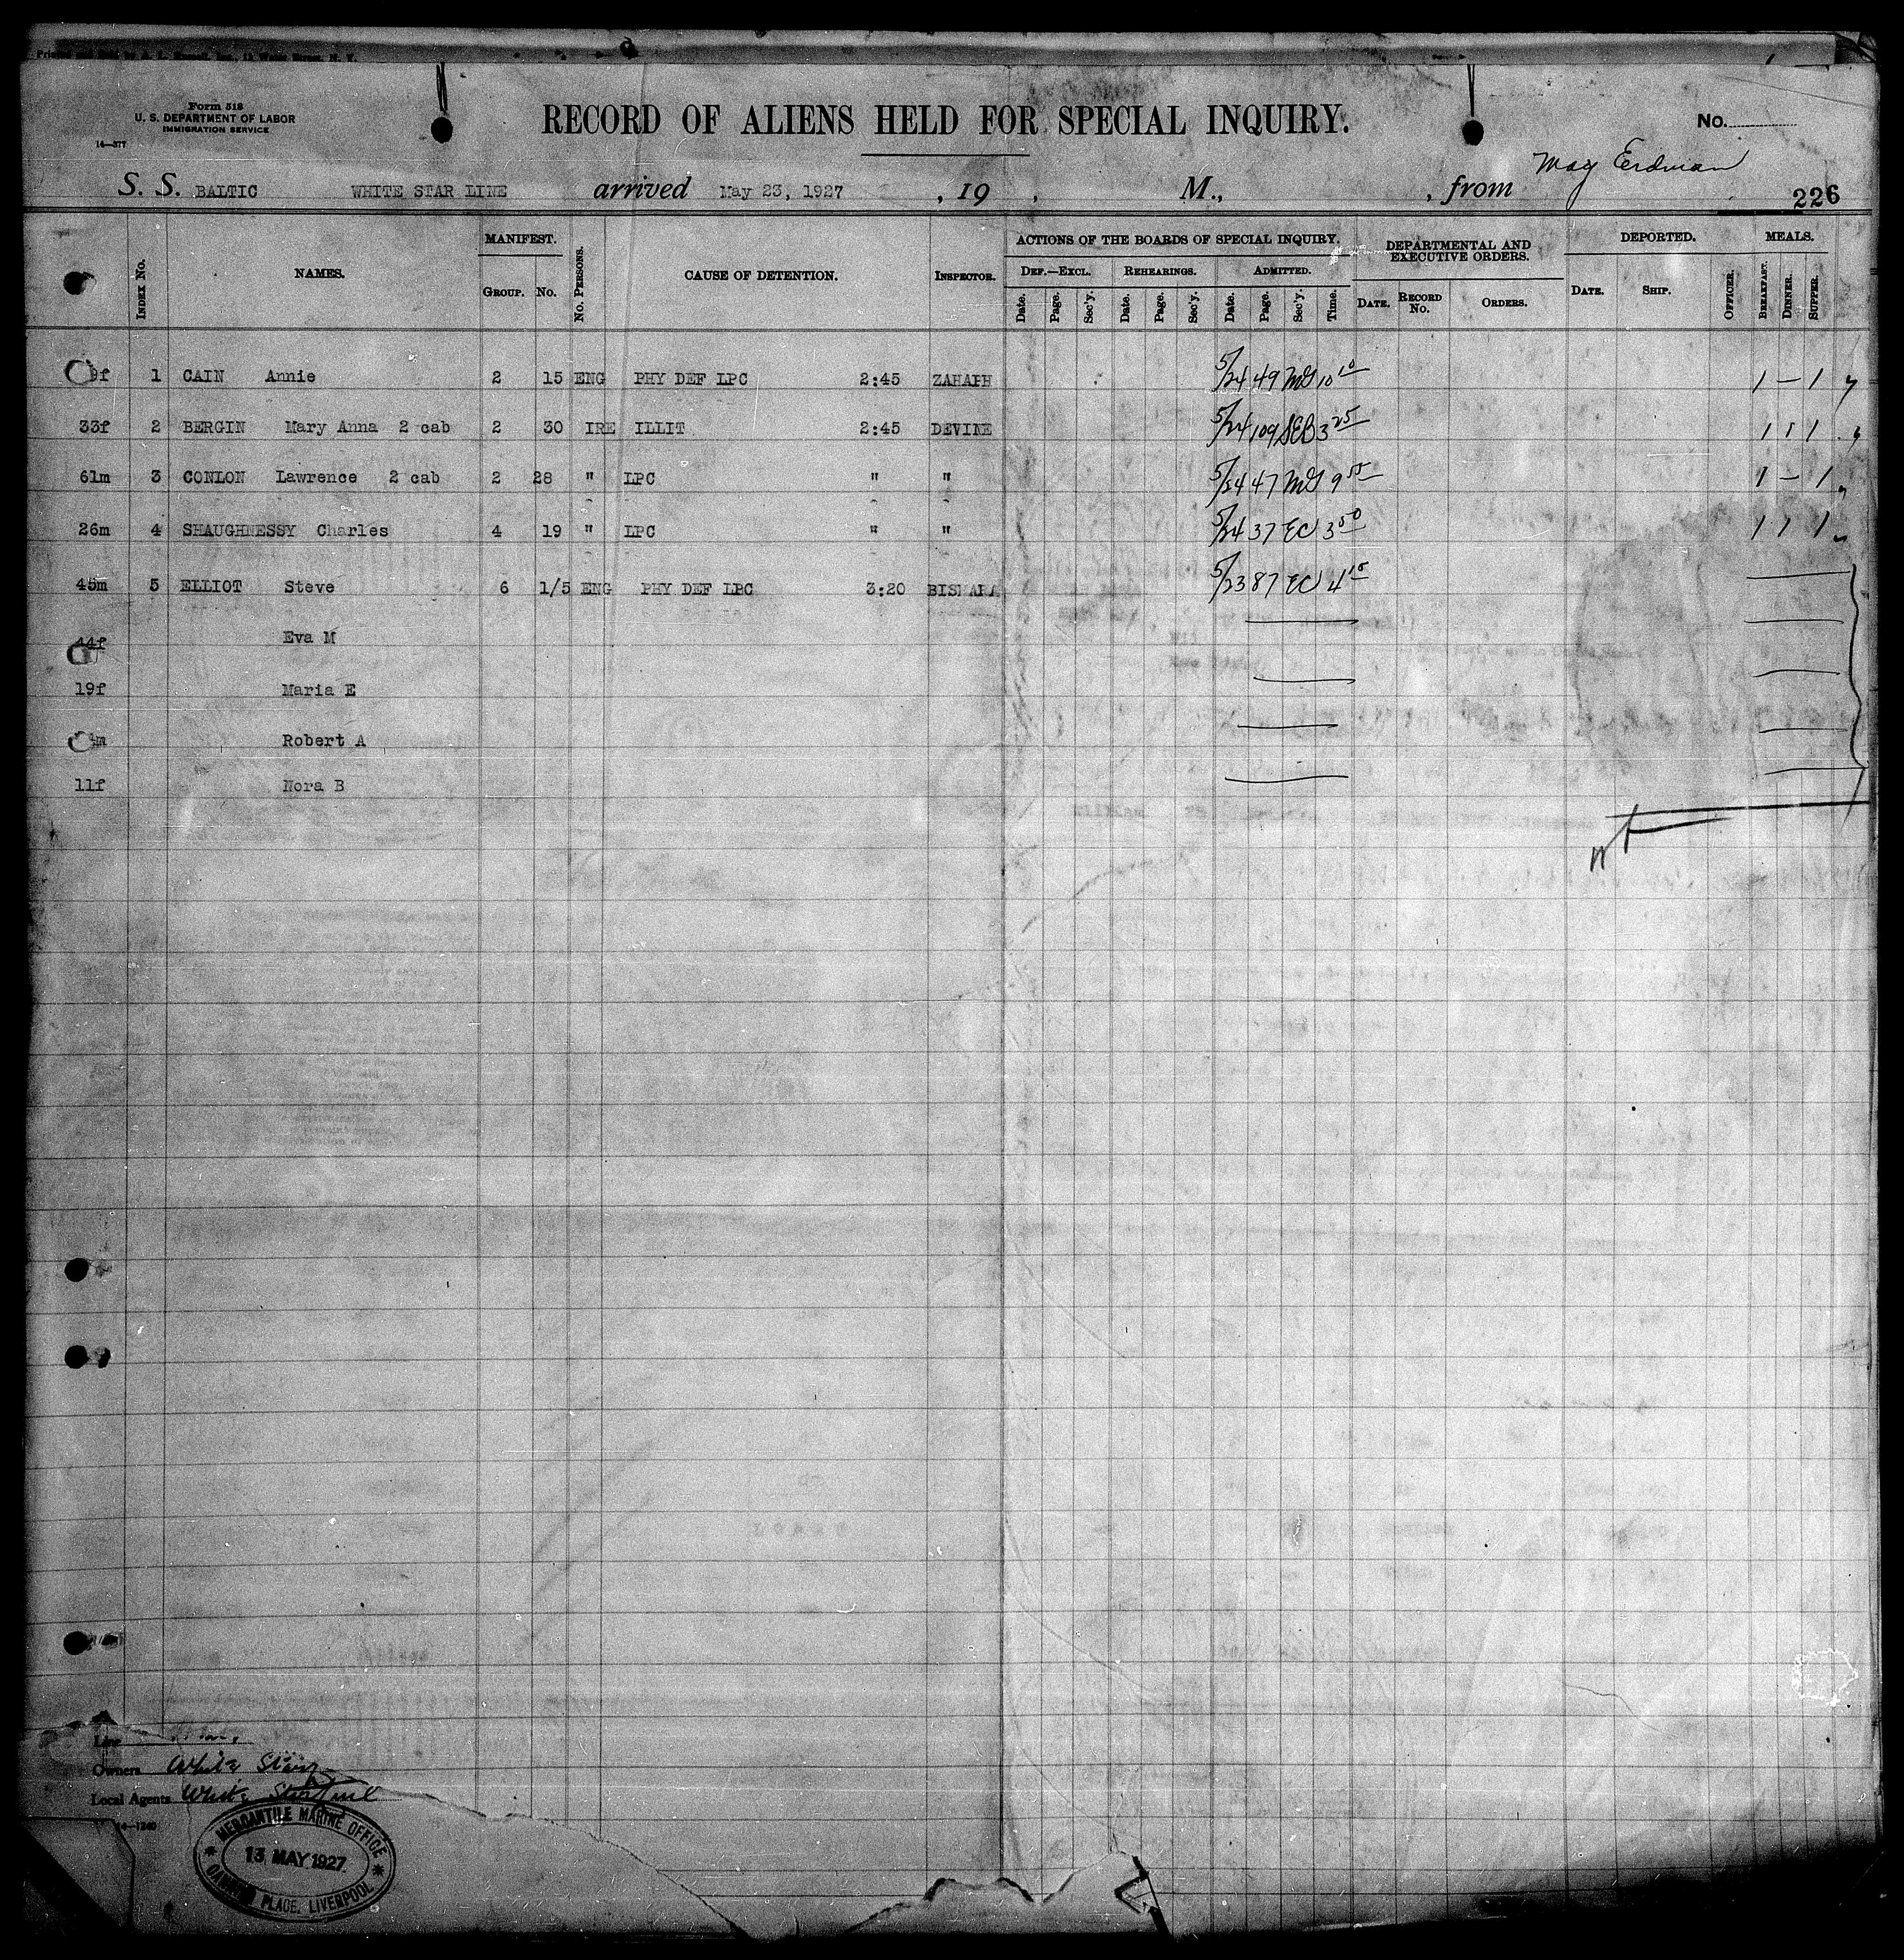 Form 518
U. S. DEPARTMENT OF LABOR
IMMIGRATION SERVICE
14—377
RECORD OF ALIENS HELD FOR SPECIAL INQUIRY.
No.
May Erdman
S. S. BALTIC WHITE STAR LINE arrived May 23, 1927 , 19 , M., , from
226
INDEX No. NAMES. MANIFEST. GROUP. No. No. PERSONS. CAUSE OF DETENTION. INSPECTOR.
ACTIONS OF THE BOARDS OF SPECIAL INQUIRY. DEF.—EXCL. REHEARINGS. ADMITTED.
Date. Page. Sec'y. Date. Page. Sec'y. Date. Page. Sec'y. Time.
DEPARTMENTAL AND EXECUTIVE ORDERS. DATE. RECORD No. ORDERS.
DEPORTED. DATE. SHIP. OFFICER.
MEALS. BREAKFAST. DINNER. SUPPER.
9f 1 CAIN Annie 2 15 ENG PHY DEF LPC 2:45 ZAHAPH 5/24 49 MG 10 10 1 — 1
33f 2 BERGIN Mary Anna 2 cab 2 30 IRE ILLIT 2:45 DEVINE 5/24 109 SEB 3 25 1 1 1
61m 3 CONLON Lawrence 2 cab 2 28 " LPC " " 5/24 47 MG 9 55 1 — 1
26m 4 SHAUGHNESSY Charles 4 19 " LPC " " 5/24 37 EC 3 50 1 1 1
45m 5 ELLIOT Steve 6 1/5 ENG PHY DEF LPC 3:20 BISHARA 5/23 87 EC 4 15
44f Eva M
19f Maria E
Robert A
11f Nora B
Line
Owners White Star
Local Agents White Star Line
14—1240
MERCANTILE MARINE OFFICE
13 MAY 1927
PLACE, LIVERPOOL